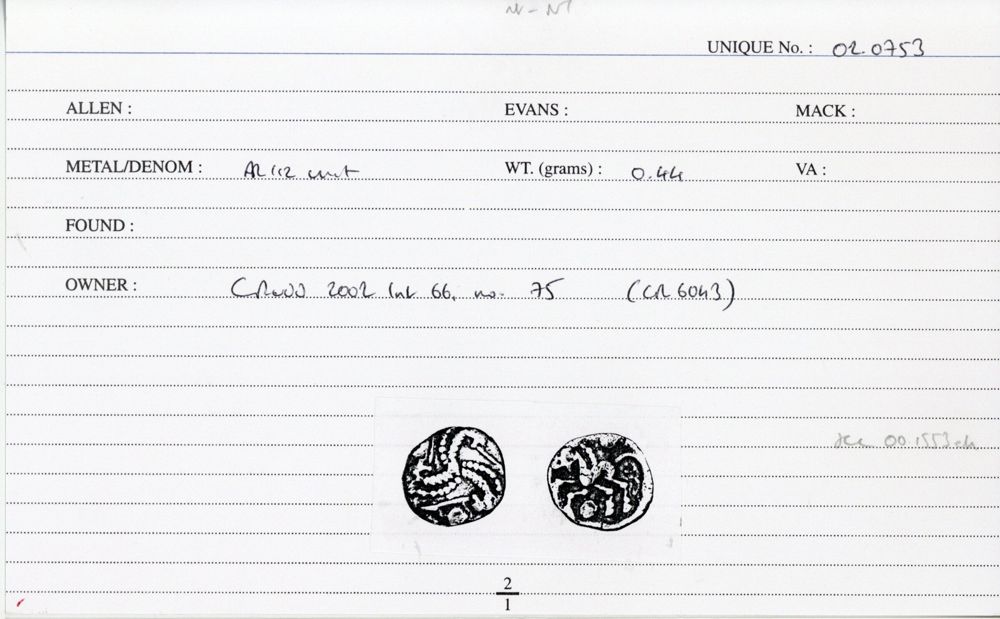 UNIQUE No. : 02.0753
ALLEN : EVANS : MACK :
METAL/DENOM : AR 1/2 unit WT. (grams) : 0.44 VA :
FOUND :
OWNER : CRUDD 2002 list 66, no. 75 (CR 6043)
00.1553
2
1